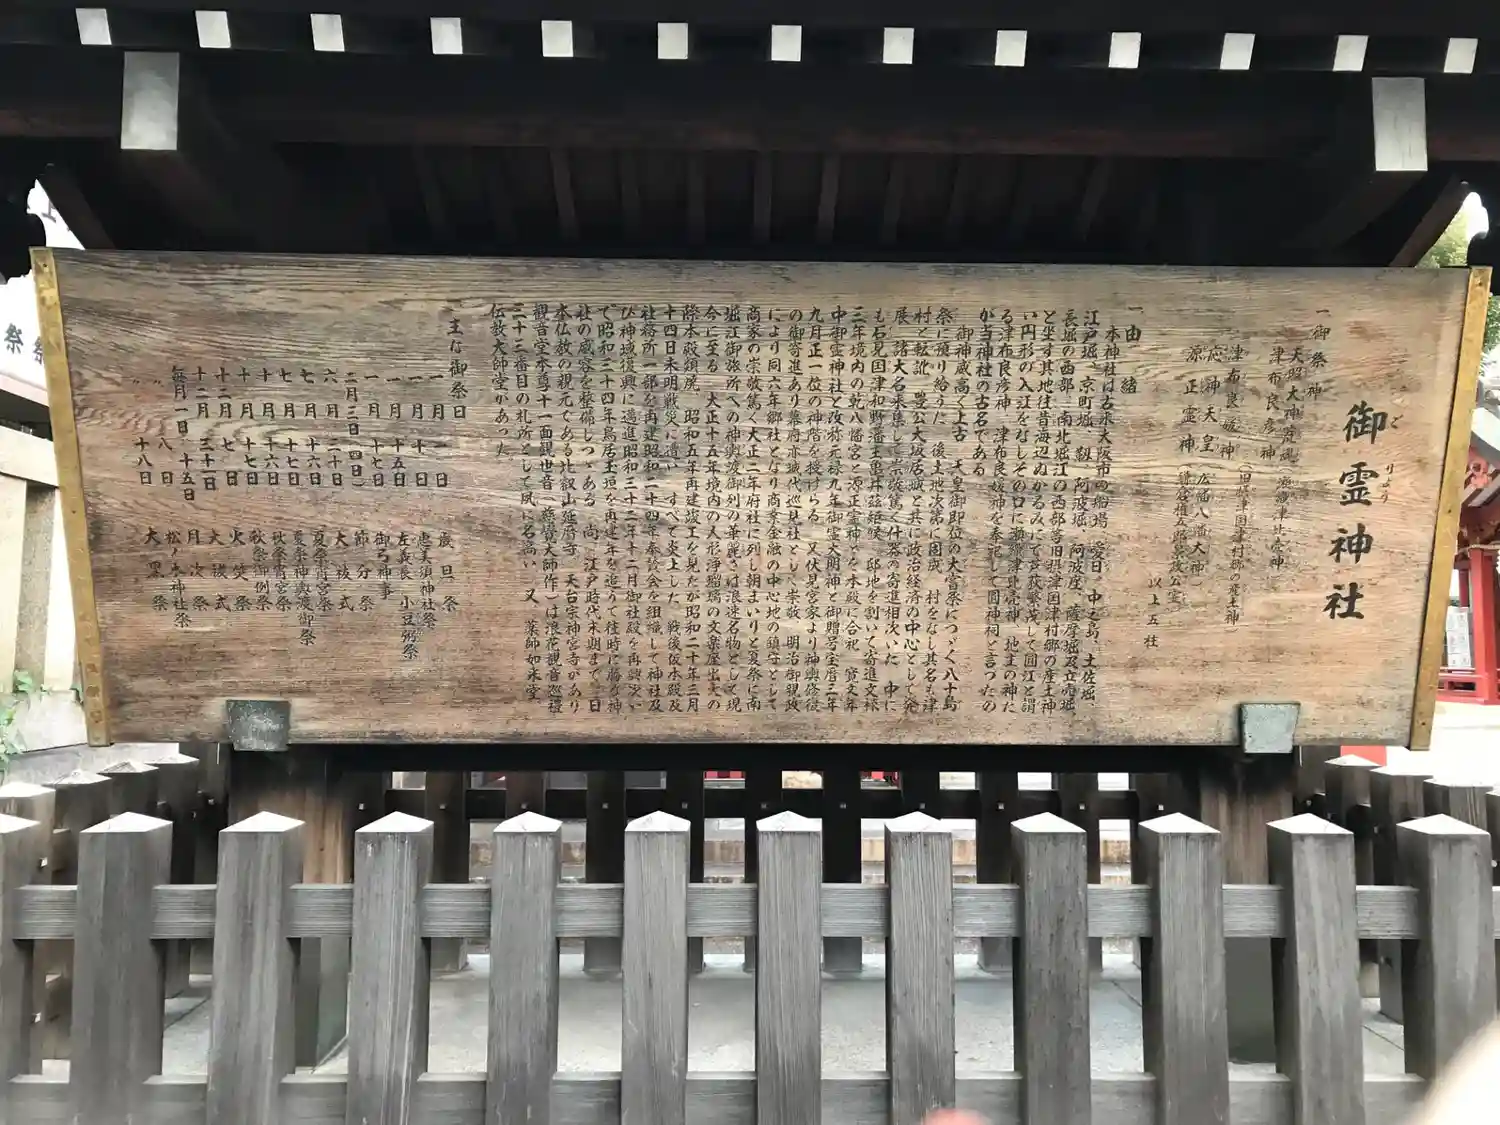 御靈神社
ご りょう
一 御祭神
天照大神荒魂
津布良彦神
津布良媛神(旧摂津国津村郷の産土神)
応神天皇(広幡八幡大神)
源正霊神(鎌倉権五郎景政公霊)
以上五社
一 由緒
本神社は古来大阪市の船場、愛日、中之島、土佐堀、
江戸堀、京町堀、靱、阿波堀、阿波座、薩摩堀及立売堀、
長堀の西部、南北堀江の西部等旧摂津国津村郷の産土神
と坐す其地往昔海辺ぬかるみにて芦荻繁茂して圓江と謂
い円形の入江をなしその口に瀬織津比売神、地主の神た
る津布良彦神、津布良媛神を奉祀して圓神祠と言ったの
が当神社の古名である
御神威高く上古、天皇御即位の大嘗祭につゞく八十島
祭に預り給うた 後土地次第に固成、村をなし其名も津
村と転訛、豊公大坂居城と共に政治経済の中心として発
展、諸大名来集して崇敬篤く什器の寄進相次いだ 中に
も石見国津和野藩主亀井茲矩候、邸地を割いて寄進文禄
三年境内の乾八幡宮と源正霊神とを本殿に合祀、寛文年
中御霊神社と改称元禄九年御霊大明神と御贈号宝暦三年
九月正一位の神階を授けらる 又伏見宮家より神輿修復
の御寄進あり幕府亦城代巡見社として崇敬、明治御親政
により同六年郷社となり商業金融の中心地の鎮守として
商家の崇敬篤く大正二年府社に列し朝まいりと夏祭に南
堀江御旅所への神輿渡御列の華麗さは浪速名物として現
今に至る 大正十五年境内の人形浄瑠璃の文楽座出火の
際本殿類焼、昭和五年再建竣工を見たが昭和二十年三月
十四日未明戦災に遭い、すべて炎上した 戦後仮本殿及
社務所一部を再建昭和二十四年奉賛会を組織して神社及
び神域復興に邁進昭和三十二年十二月御社殿を再興次い
で昭和三十四年鳥居玉垣を再建年を追うて往時に勝る神
社の威容を整備しつゝある 尚、江戸時代末期まで、三日
本仏教の親元である比叡山延暦寺、天台宗神宮寺があり
観音堂本尊十一面観世音(慈覚大師作)は浪花観音巡礼
三十三番目の札所として夙に名高い 又、薬師如来堂、
伝教大師堂があった
一 主な御祭日
一月一日 歳旦祭
一月十日 恵美須神社祭
一月十五日 左義長 小豆粥祭
一月十七日 御弓神事
二月三日(四日) 節分祭
六月三十日 大祓式
七月十六日 夏祭宵宮祭
七月十七日 夏季神輿渡御祭
十月十六日 秋季宵宮祭
十月十七日 秋祭御例祭
十二月七日 火焚祭
十二月三十一日 大祓式
毎月一日、十五日 月次祭
〃 八日 松ノ木神社祭
〃 十八日 大黒祭
祭